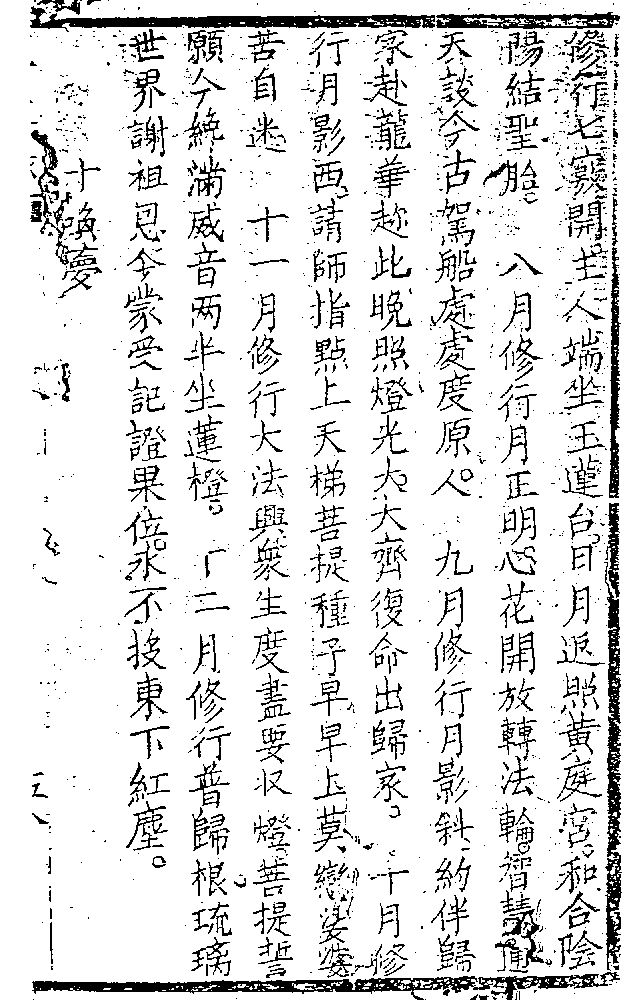 修行七竅開。主人端坐玉蓮台。日月返照黃庭宮。和合陰
陽結聖胎。　八月修行月正明。心花開放轉法輪。智慧
天談今古駕船處處度原人。　九月修行月影斜。約伴歸
家赴龍華趂此晚照燈光大。大齊復命出歸家。　十月修
行月影西。請師指點上天梯菩提種子早早上莫戀娑婆
苦自迷　十一月修行大法興衆生度盡要収燈。菩提誓
願今纔滿威音两半坐蓮橙。　十二月修行普歸根琉璃
世界謝祖恩今蒙受記證果位。永不投東下紅塵。
十喚夢